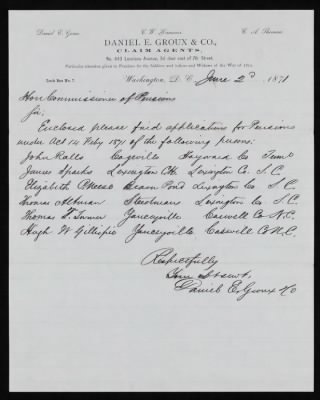 Daniel E. Groux C. W. Bennett C. A. Sherman
DANIEL E. GROUX & CO.,
CLAIM AGENTS,
No. 493 Louisiana Avenue, 3d door east of 7th Street.
Particular attention given to Pensions for the Soldiers and Sailors and Widows of the War of 1812.
Lock Box No. 7. Washington, D. C. June 2d 1871
Hon Commissioner of Pensions
Sir,
Enclosed please find applications for Pensions
under Act 14 Feby 1871 of the following persons;
John Ralls Cageville Haywood Co Tenn
James Sparks Lexington C.H. Lexington Co. S.C.
Elizabeth Meese Beam Pond Lexington Co S.C.
Thomas Altman Steedmans Lexington Co S.C.
Thomas T. Turner Yanceyville Caswell Co N.C.
Hugh W Gillispie Yanceyville Caswell Co N.C.
Respectfully
Your Obt Servts
Daniel E. Groux & Co